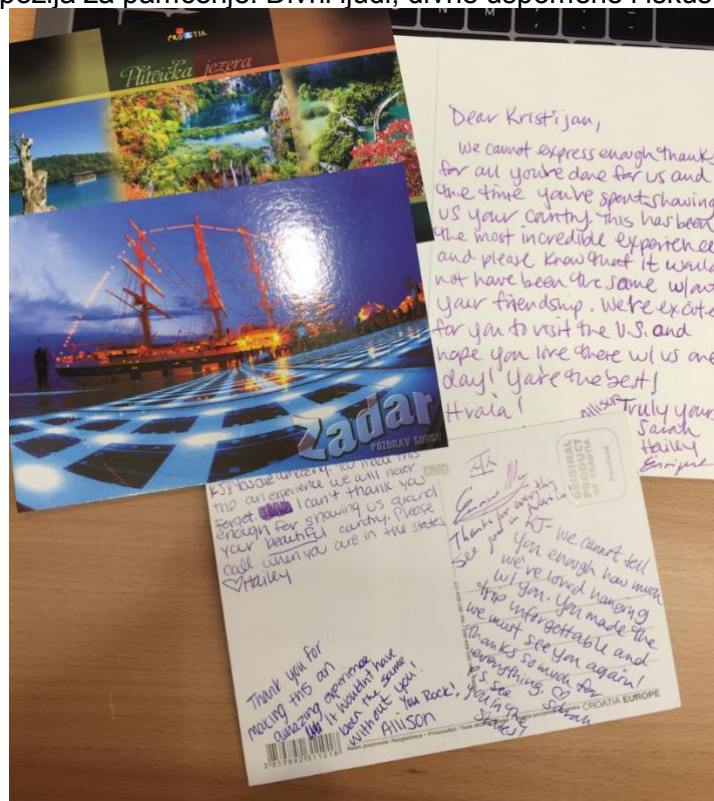 pozija za pamćenje. Divni ljudi, divne uspomene i iskus
CROATIA
Plitvička jezera
Zadar
POZDRAV SUNCU
Dear Kristijan,
We cannot express enough thank
for all you're done for us and
the time you've spent showing
us your cuntry. This has been
the most incredible experience
and please know that it would
not have been the same w/out
your friendship. We're excite
for you to visit the U.S. and
hope you live there w/ us one
day! You're the best!
Hvala!
Truly yours
Allison
Sarah
Hailey
Enrique
KJ! You are amazing. You made this
trip an experience we will never
forget I can't thank you
enough for showing us around
your beautiful cuntry. Please
call when you are in the states
♡Hailey
Thank you for
making this an
amazing experience
it wouldn't have
been the same
without you!
You Rock!
Allison
ORIGINAL
PRODUCT
OF CROATIA
Postcard
Thanks for everything
See you in America
KJ- We cannot tell
you enough how much
we've loved hanging
w/ you. You made the
trip unforgettable and
we must see you again!
Thanks so much for
everything. ♡
Sarah
P.S. See
you in the
States!
CROATIA EUROPE
3 859892 311018